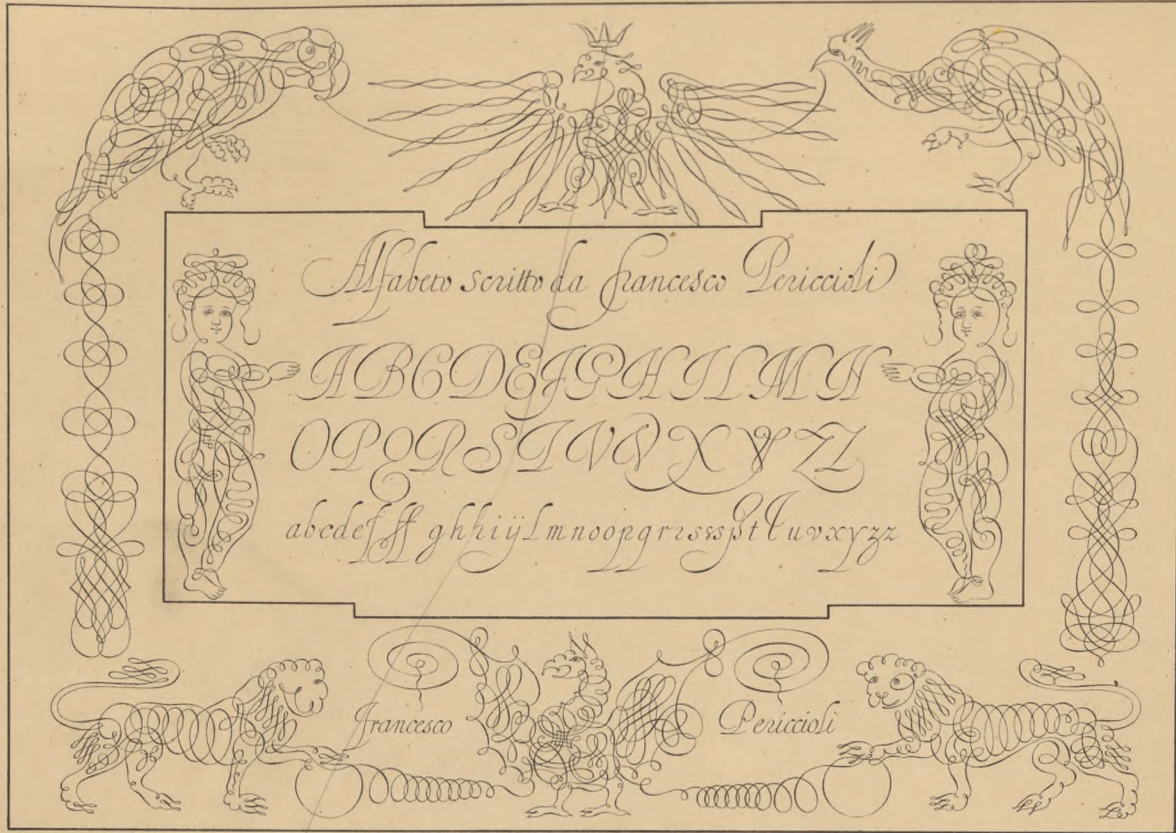 Alfabeto scritto da francesco Periccioli
A B C D E F G H I L M N
O P Q R S T V V X Y Z Z
a b c d e f ff g h h i ÿ l m n o o p q r r s s s p t t u v x y z z
francesco Periccioli